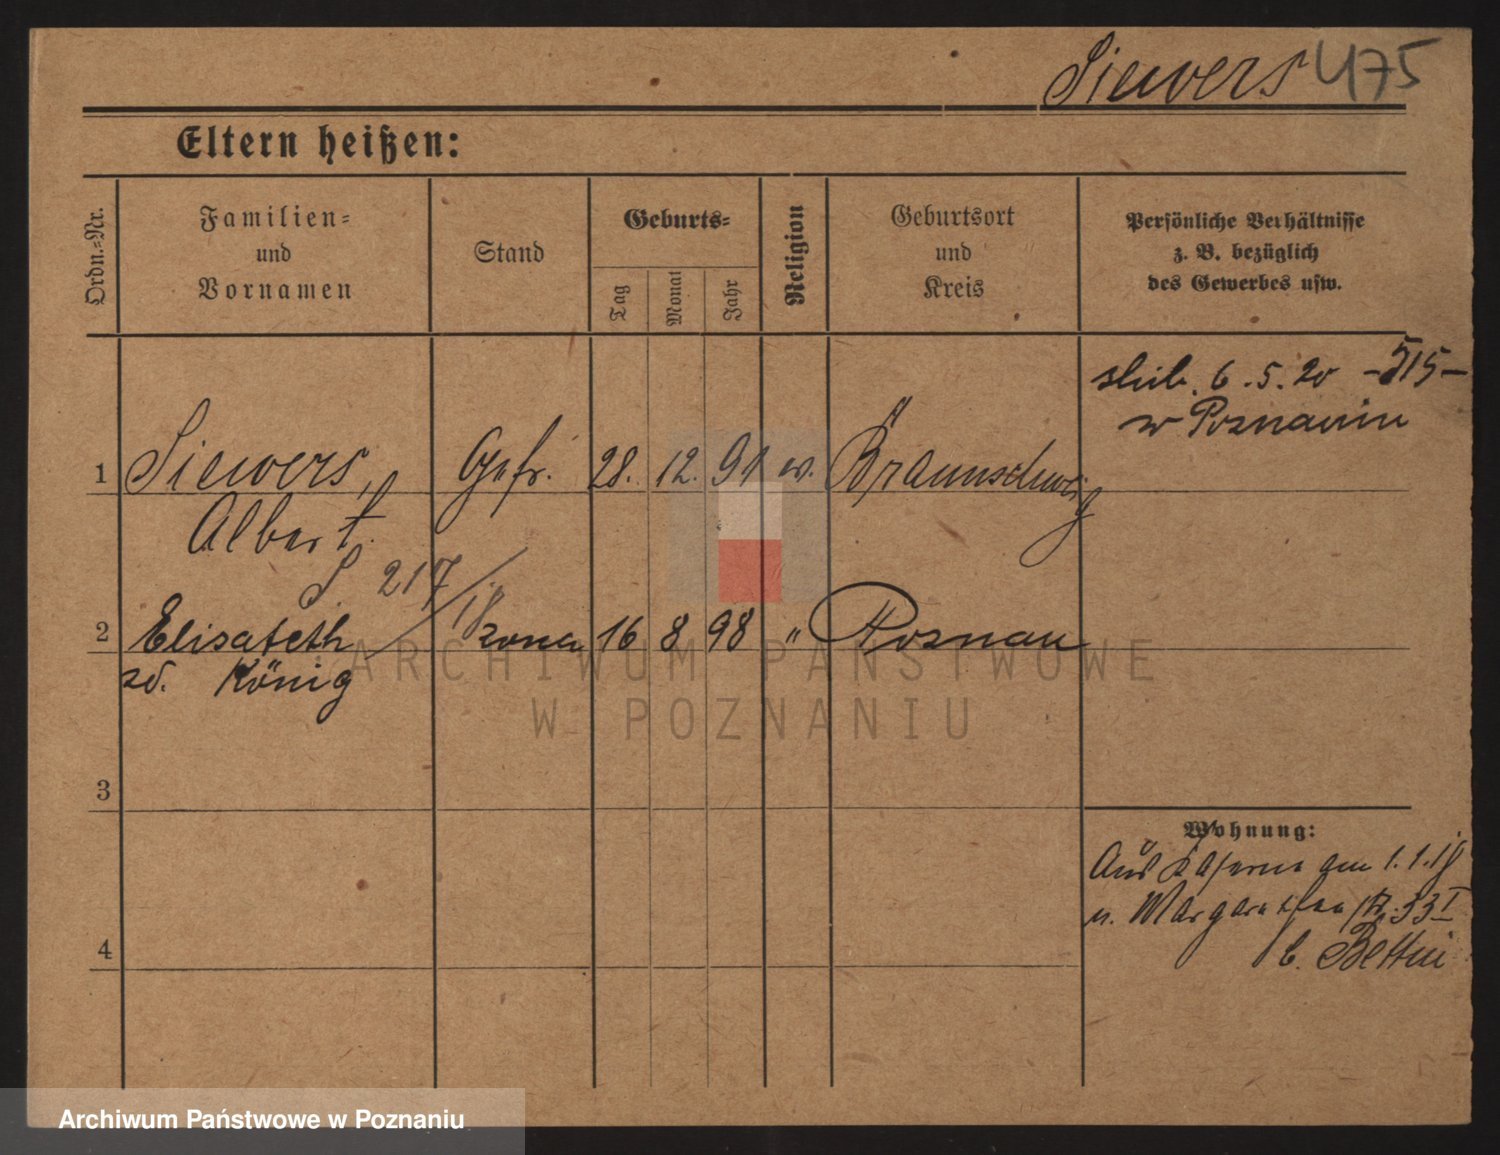 Siewers 475
Eltern heißen:
Ordn.=Nr.
Familien=
und
Vornamen
Stand
Geburts=
Tag
Monat
Jahr
Religion
Geburtsort
und
Kreis
Persönliche Verhältnisse
z. B. bezüglich
des Gewerbes usw.
ślub. 6.5.20 -515-
w Poznaniu
1 Siewers, Gefr. 28. 12. 91 ew. Braunschweig
Albert
S 217/18
2 Elisabeth żona 16 8 98 " Poznań
zd. König
3
4
Wohnung:
Aus Kaserne am 1.1.19
n. Margarethenstr. 33 I
b. Bettin
ARCHIWUM PAŃSTWOWE
W POZNANIU
Archiwum Państwowe w Poznaniu